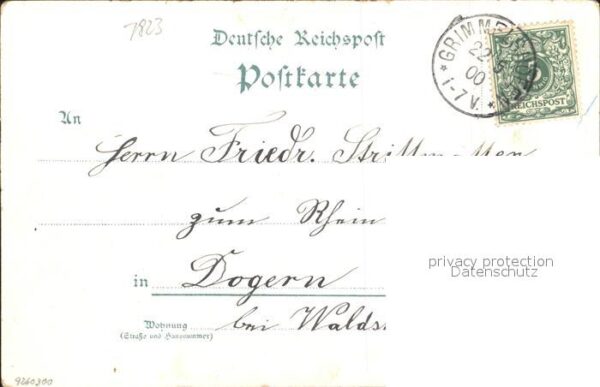 7823
Deutsche Reichspost
Postkarte
An
Herrn Friedr. Stritt
zum Rhein
in Dogern
bei Walds
Wohnung
(Straße und Hausnummer)
GRIMME
22
00
* 1-7 V. *
REICHSPOST
privacy protection
Datenschutz
9260300